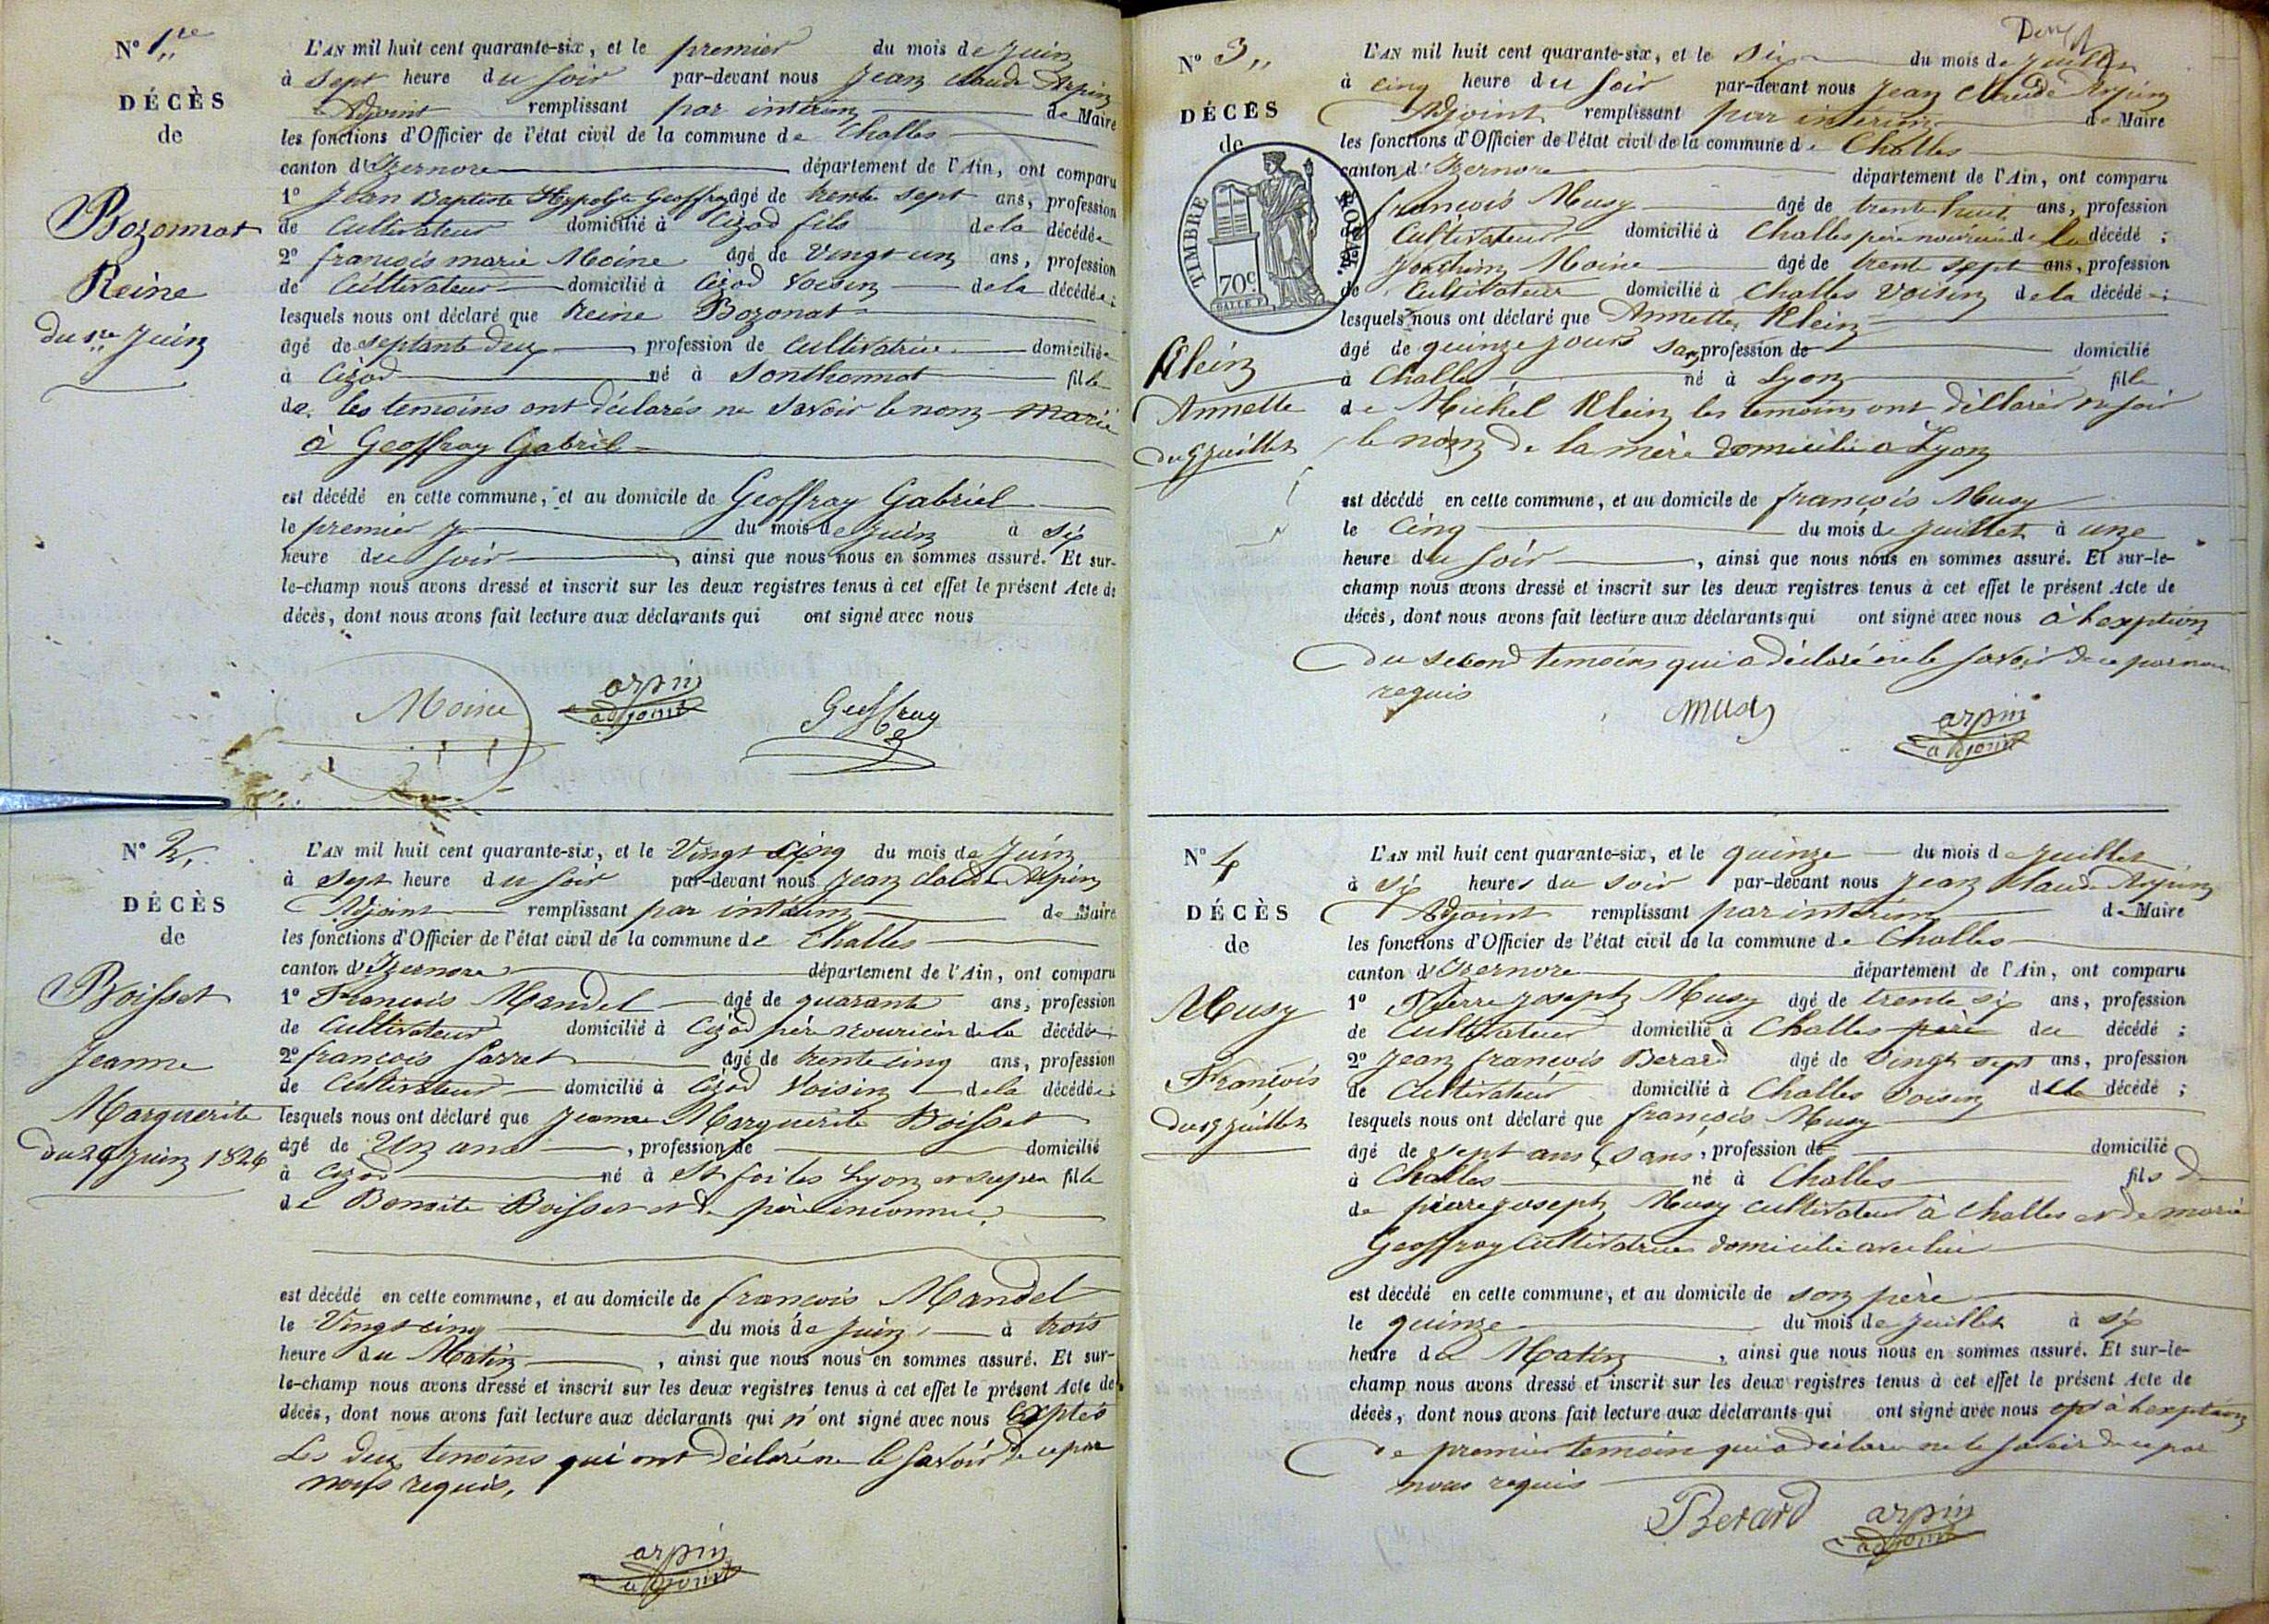 N° 1re
DÉCÈS
de
Bozonnat
Reine
du 1re Juin
L'AN mil huit cent quarante-six, et le premier du mois de Juin
à sept heure du soir par-devant nous Jean Claude Arpin
Adjoint remplissant par intérim de Maire
les fonctions d'Officier de l'état civil de la commune de Challes
canton d'Izernore département de l'Ain, ont comparu
1° Jean Baptiste Hyppolyte Geoffray âgé de trente sept ans, profession
de Cultivateur domicilié à Cizod fils de la décédée
2° françois marie Moine âgé de Vingt un ans, profession
de Cultivateur domicilié à Cizod Voisin de la décédée;
lesquels nous ont déclaré que Reine Bozonat
âgé de septante deux, profession de Cultivatrice domiciliée
à Cizod né à Sonthonnat fille
de les temoins ont déclarés ne savoir le nom marié
à Geoffray Gabriel
est décédé en cette commune, et au domicile de Geoffray Gabriel
le premier du mois de Juin à six
heure du soir, ainsi que nous nous en sommes assuré. Et sur-
le-champ nous avons dressé et inscrit sur les deux registres tenus à cet effet le présent Acte de
décès, dont nous avons fait lecture aux déclarants qui ont signé avec nous
Moine arpin adjoint Geoffray
N° 2
DÉCÈS
de
Boisset
Jeanne
Marguerite
du 24 Juin 1826
L'AN mil huit cent quarante-six, et le Vingt cinq du mois de Juin
à sept heure du soir par-devant nous Jean Claude Arpin
Adjoint remplissant par intérim de Maire
les fonctions d'Officier de l'état civil de la commune de Challes
canton d'Izernore département de l'Ain, ont comparu
1° François Mandel âgé de quarante ans, profession
de Cultivateur domicilié à Cizod père nouricier de la décédée
2° françois Parret âgé de trente cinq ans, profession
de Cultivateur domicilié à Cizod Voisin de la décédée;
lesquels nous ont déclaré que Jeanne Marguerite Boisset
âgé de Un ans, profession de domicilié
à Cizod né à St foi les Lyon fille
de Benoite Boisset et de père inconnu
est décédé en cette commune, et au domicile de françois Mandel
le Vingt cinq du mois de Juin à trois
heure du Matin, ainsi que nous nous en sommes assuré. Et sur-
le-champ nous avons dressé et inscrit sur les deux registres tenus à cet effet le présent Acte de
décès, dont nous avons fait lecture aux déclarants qui n'ont signé avec nous exptés
Les deux temoins qui ont déclaré ne le savoir de ce par
nous requis,
arpin
adjoint
N° 3
DÉCÈS
de
TIMBRE ROYAL.
70c
Klein
Annette
du 5 juillet
L'AN mil huit cent quarante-six, et le six du mois de Juillet
à cinq heure du soir par-devant nous Jean Claude Arpin
Adjoint remplissant par intérim de Maire
les fonctions d'Officier de l'état civil de la commune de Challes
canton d'Izernore département de l'Ain, ont comparu
françois Musy âgé de trente huit ans, profession
de Cultivateur domicilié à Challes père nouricier de la décédé;
Joachim Moine âgé de trente sept ans, profession
de Cultivateur domicilié à Challes Voisin de la décédé;
lesquels nous ont déclaré que Annette Klein
âgé de quinze jours san profession de domicilié
à Challes né à Lyon fille
de Michel Klein les temoins ont déclaré savoir
le nom de la mère domicilié a Lyon
est décédé en cette commune, et au domicile de françois Musy
le Cinq du mois de Juillet à une
heure du soir, ainsi que nous nous en sommes assuré. Et sur-le-
champ nous avons dressé et inscrit sur les deux registres tenus à cet effet le présent Acte de
décès, dont nous avons fait lecture aux déclarants qui ont signé avec nous à l'exption
du second temoins qui a déclaré ne le savoir de ce par nous
requis
musy arpin adjoint
N° 4
DÉCÈS
de
Musy
François
du 15 Juillet
L'AN mil huit cent quarante-six, et le quinze du mois de juillet
à six heures du soir par-devant nous Jean Claude Arpin
Adjoint remplissant par intérim de Maire
les fonctions d'Officier de l'état civil de la commune de Challes
canton d'Izernore département de l'Ain, ont comparu
1° Pierre Joseph Musy âgé de trente six ans, profession
de Cultivateur domicilié à Challes père du décédé;
2° Jean françois Berard âgé de Vingt sept ans, profession
de Cultivateur domicilié à Challes Voisin décédé;
lesquels nous ont déclaré que françois Musy
âgé de sept ans sans, profession de domicilié
à Challes né à Challes fils de
de pierre joseph Musy cultivateur à Challes et de marie
Geoffray Cultivatrice domicilié avec lui
est décédé en cette commune, et au domicile de son père
le quinze du mois de Juillet à six
heure du Matin, ainsi que nous nous en sommes assuré. Et sur-le-
champ nous avons dressé et inscrit sur les deux registres tenus à cet effet le présent Acte de
décès, dont nous avons fait lecture aux déclarants qui ont signé avec nous à l'exption
de premier temoin qui a déclaré ne le savoir de ce par
nous requis
Berard arpin adjoint